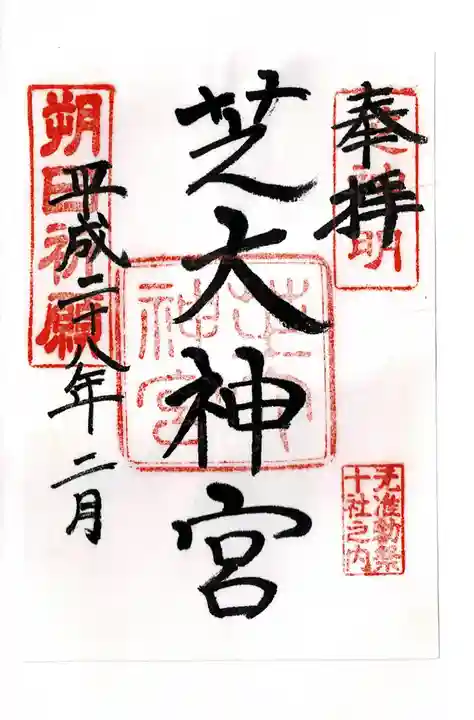 奉拝
芝大神宮
元准勅祭
十社之内
朔日祈願
平成二十八年二月